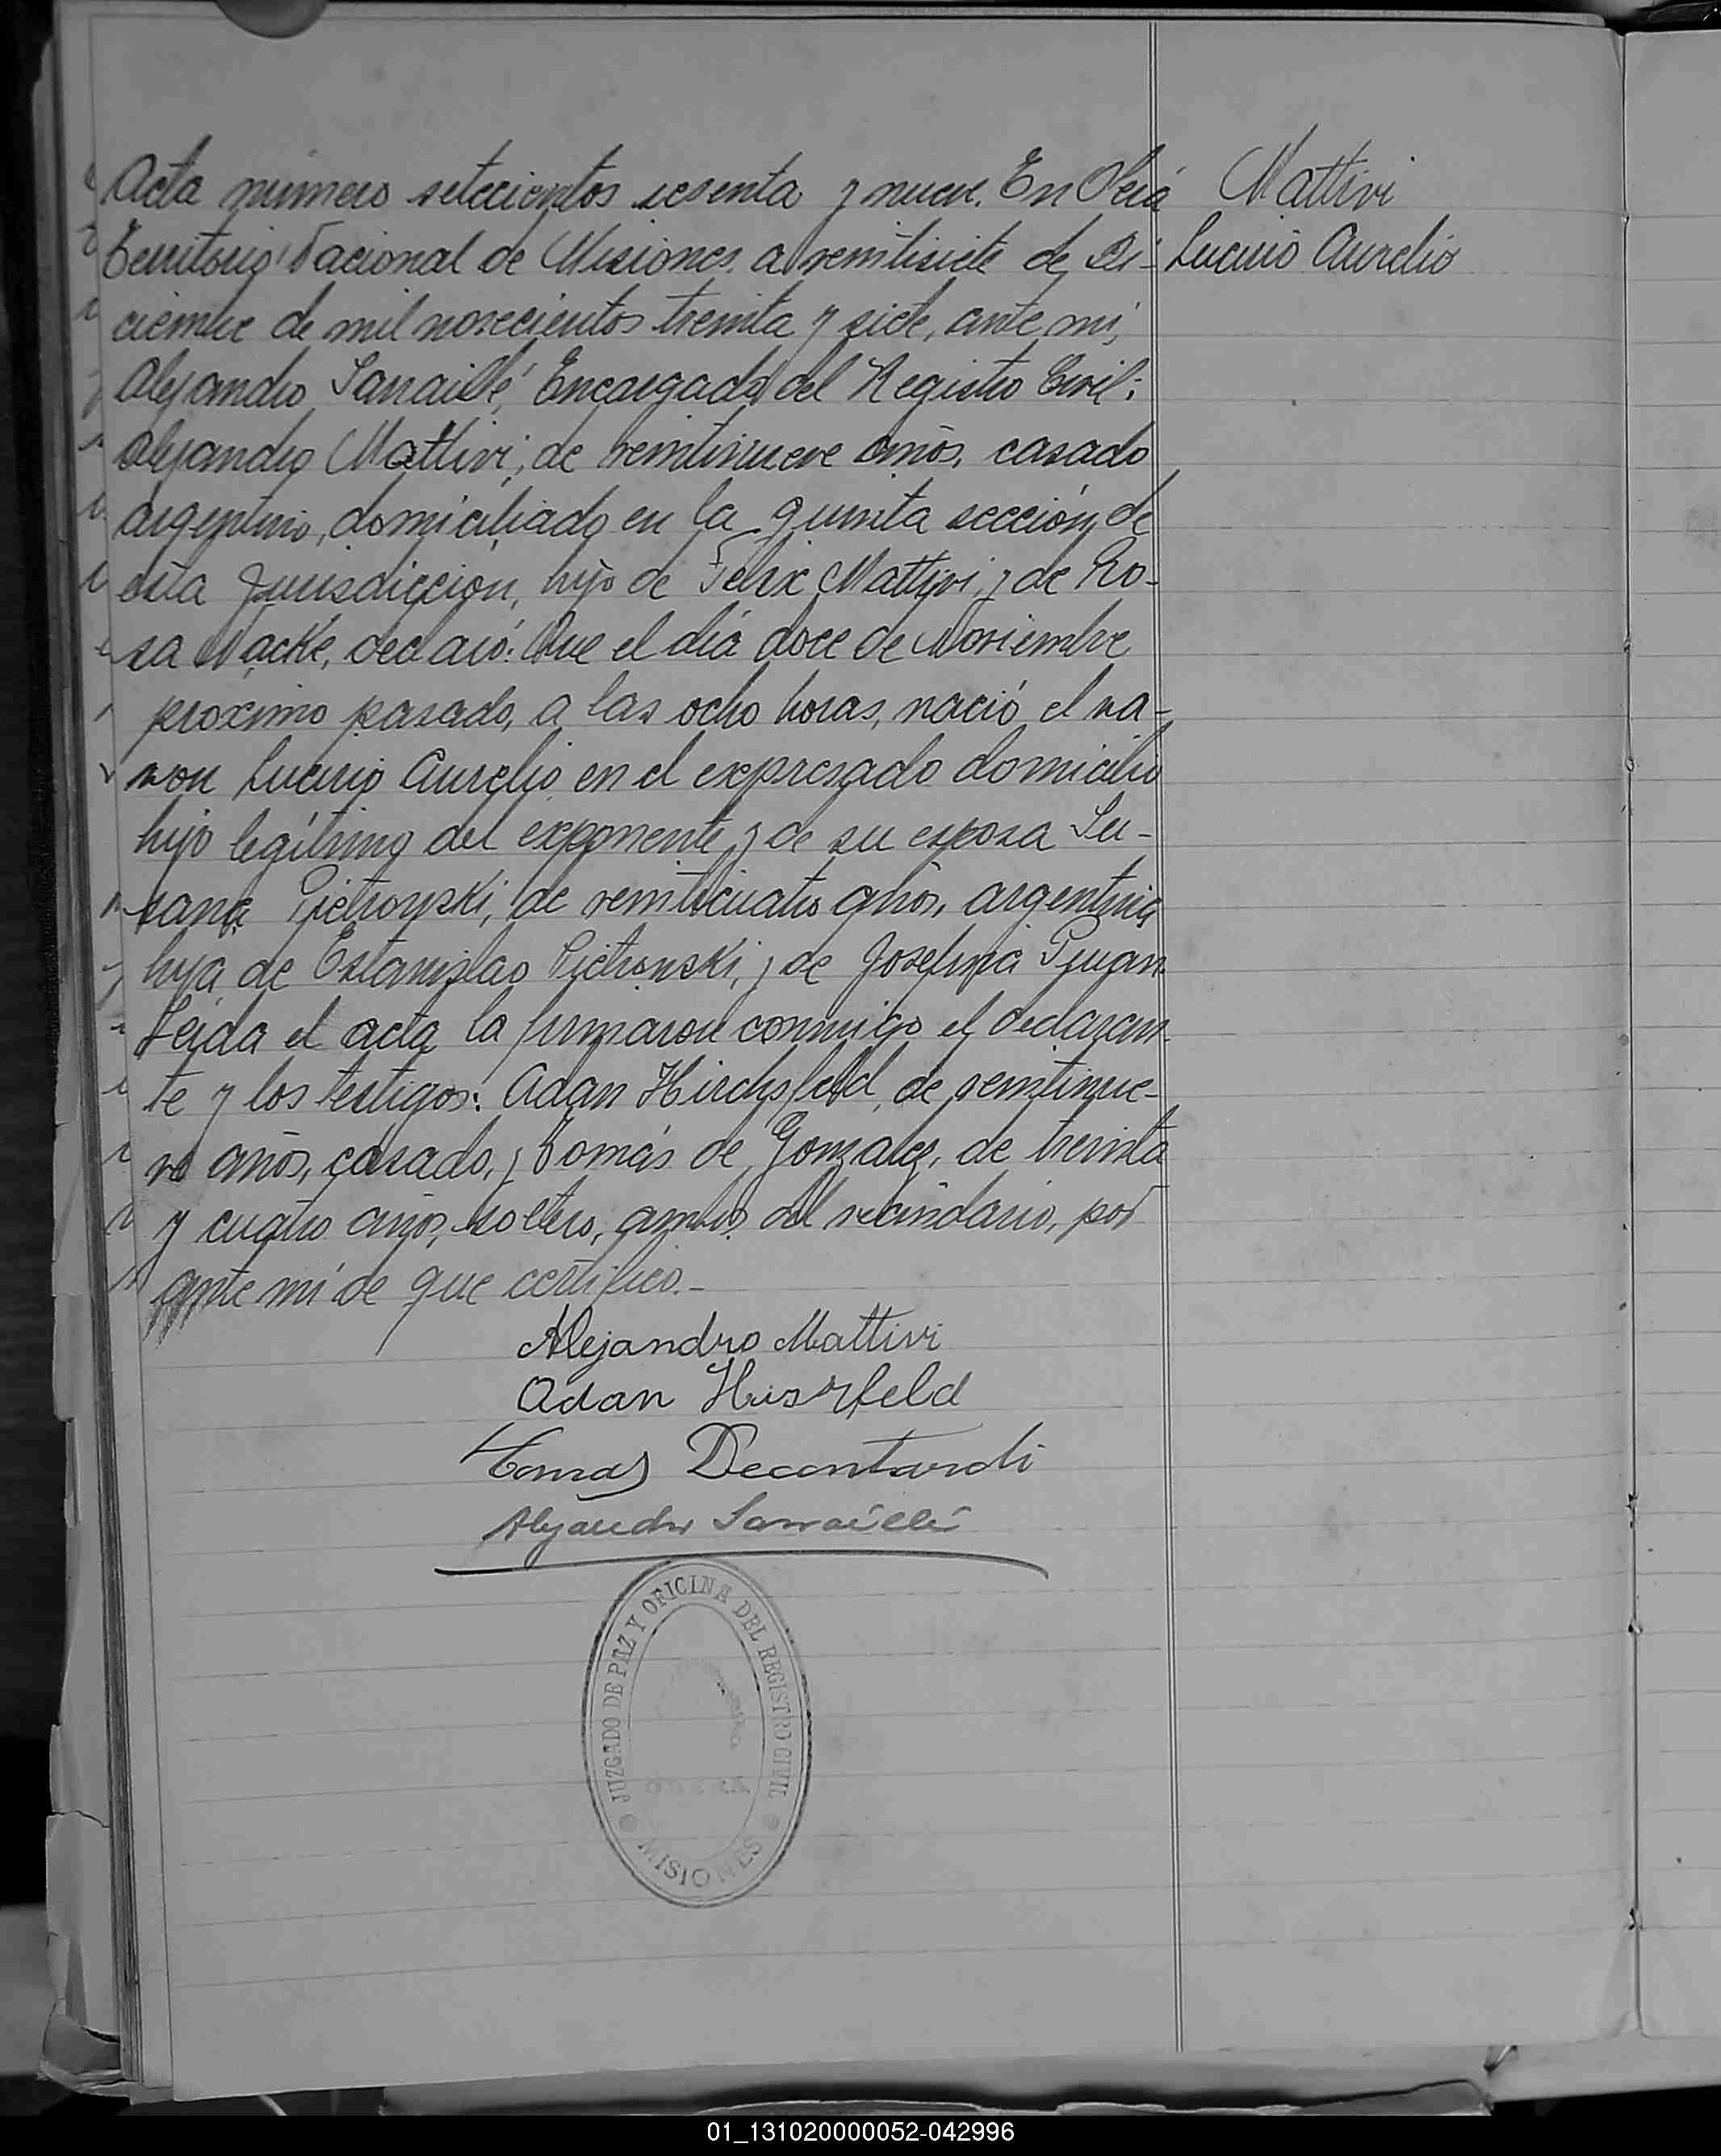 Acta número setecientos sesenta y nueve. En Oberá
Territorio Nacional de Misiones, a veintisiete de Di-
ciembre de mil novecientos treinta y siete, ante mí,
Alejandro Sarraillé, Encargado del Registro Civil:
Alejandro Mattivi, de veintinueve años, casado
argentino, domiciliado en la quinta sección de
esta Jurisdicción, hijo de Felix Mattivi, y de Ro-
sa Wacke, declaró: Que el día doce de Noviembre
próximo pasado, a las ocho horas, nació el va-
ron Lucirio Aurelio en el expresado domicilio
hijo legítimo del exponente y de su esposa Su-
sana Pietrowski, de veinticuatro años, argentina
hija de Estanislao Pietronski, y de Josefina
Leída el acta la firmaron conmigo el declaran-
te y los testigos: Adan Hirchsfeld, de veintinue-
ve años, casado, y Tomás de Gonzalez, de treinta
y cuatro años, soltero, ambos del vecindario, por
ante mí de que certifico.-
Mattivi
Lucirio Aurelio
Alejandro Mattivi
Adan Hirsfeld
Tomas Decontardi
Alejandro Sarraillé
JUZGADO DE PAZ Y OFICINA DEL REGISTRO CIVIL
OBERÁ
MISIONES
01_131020000052-042996